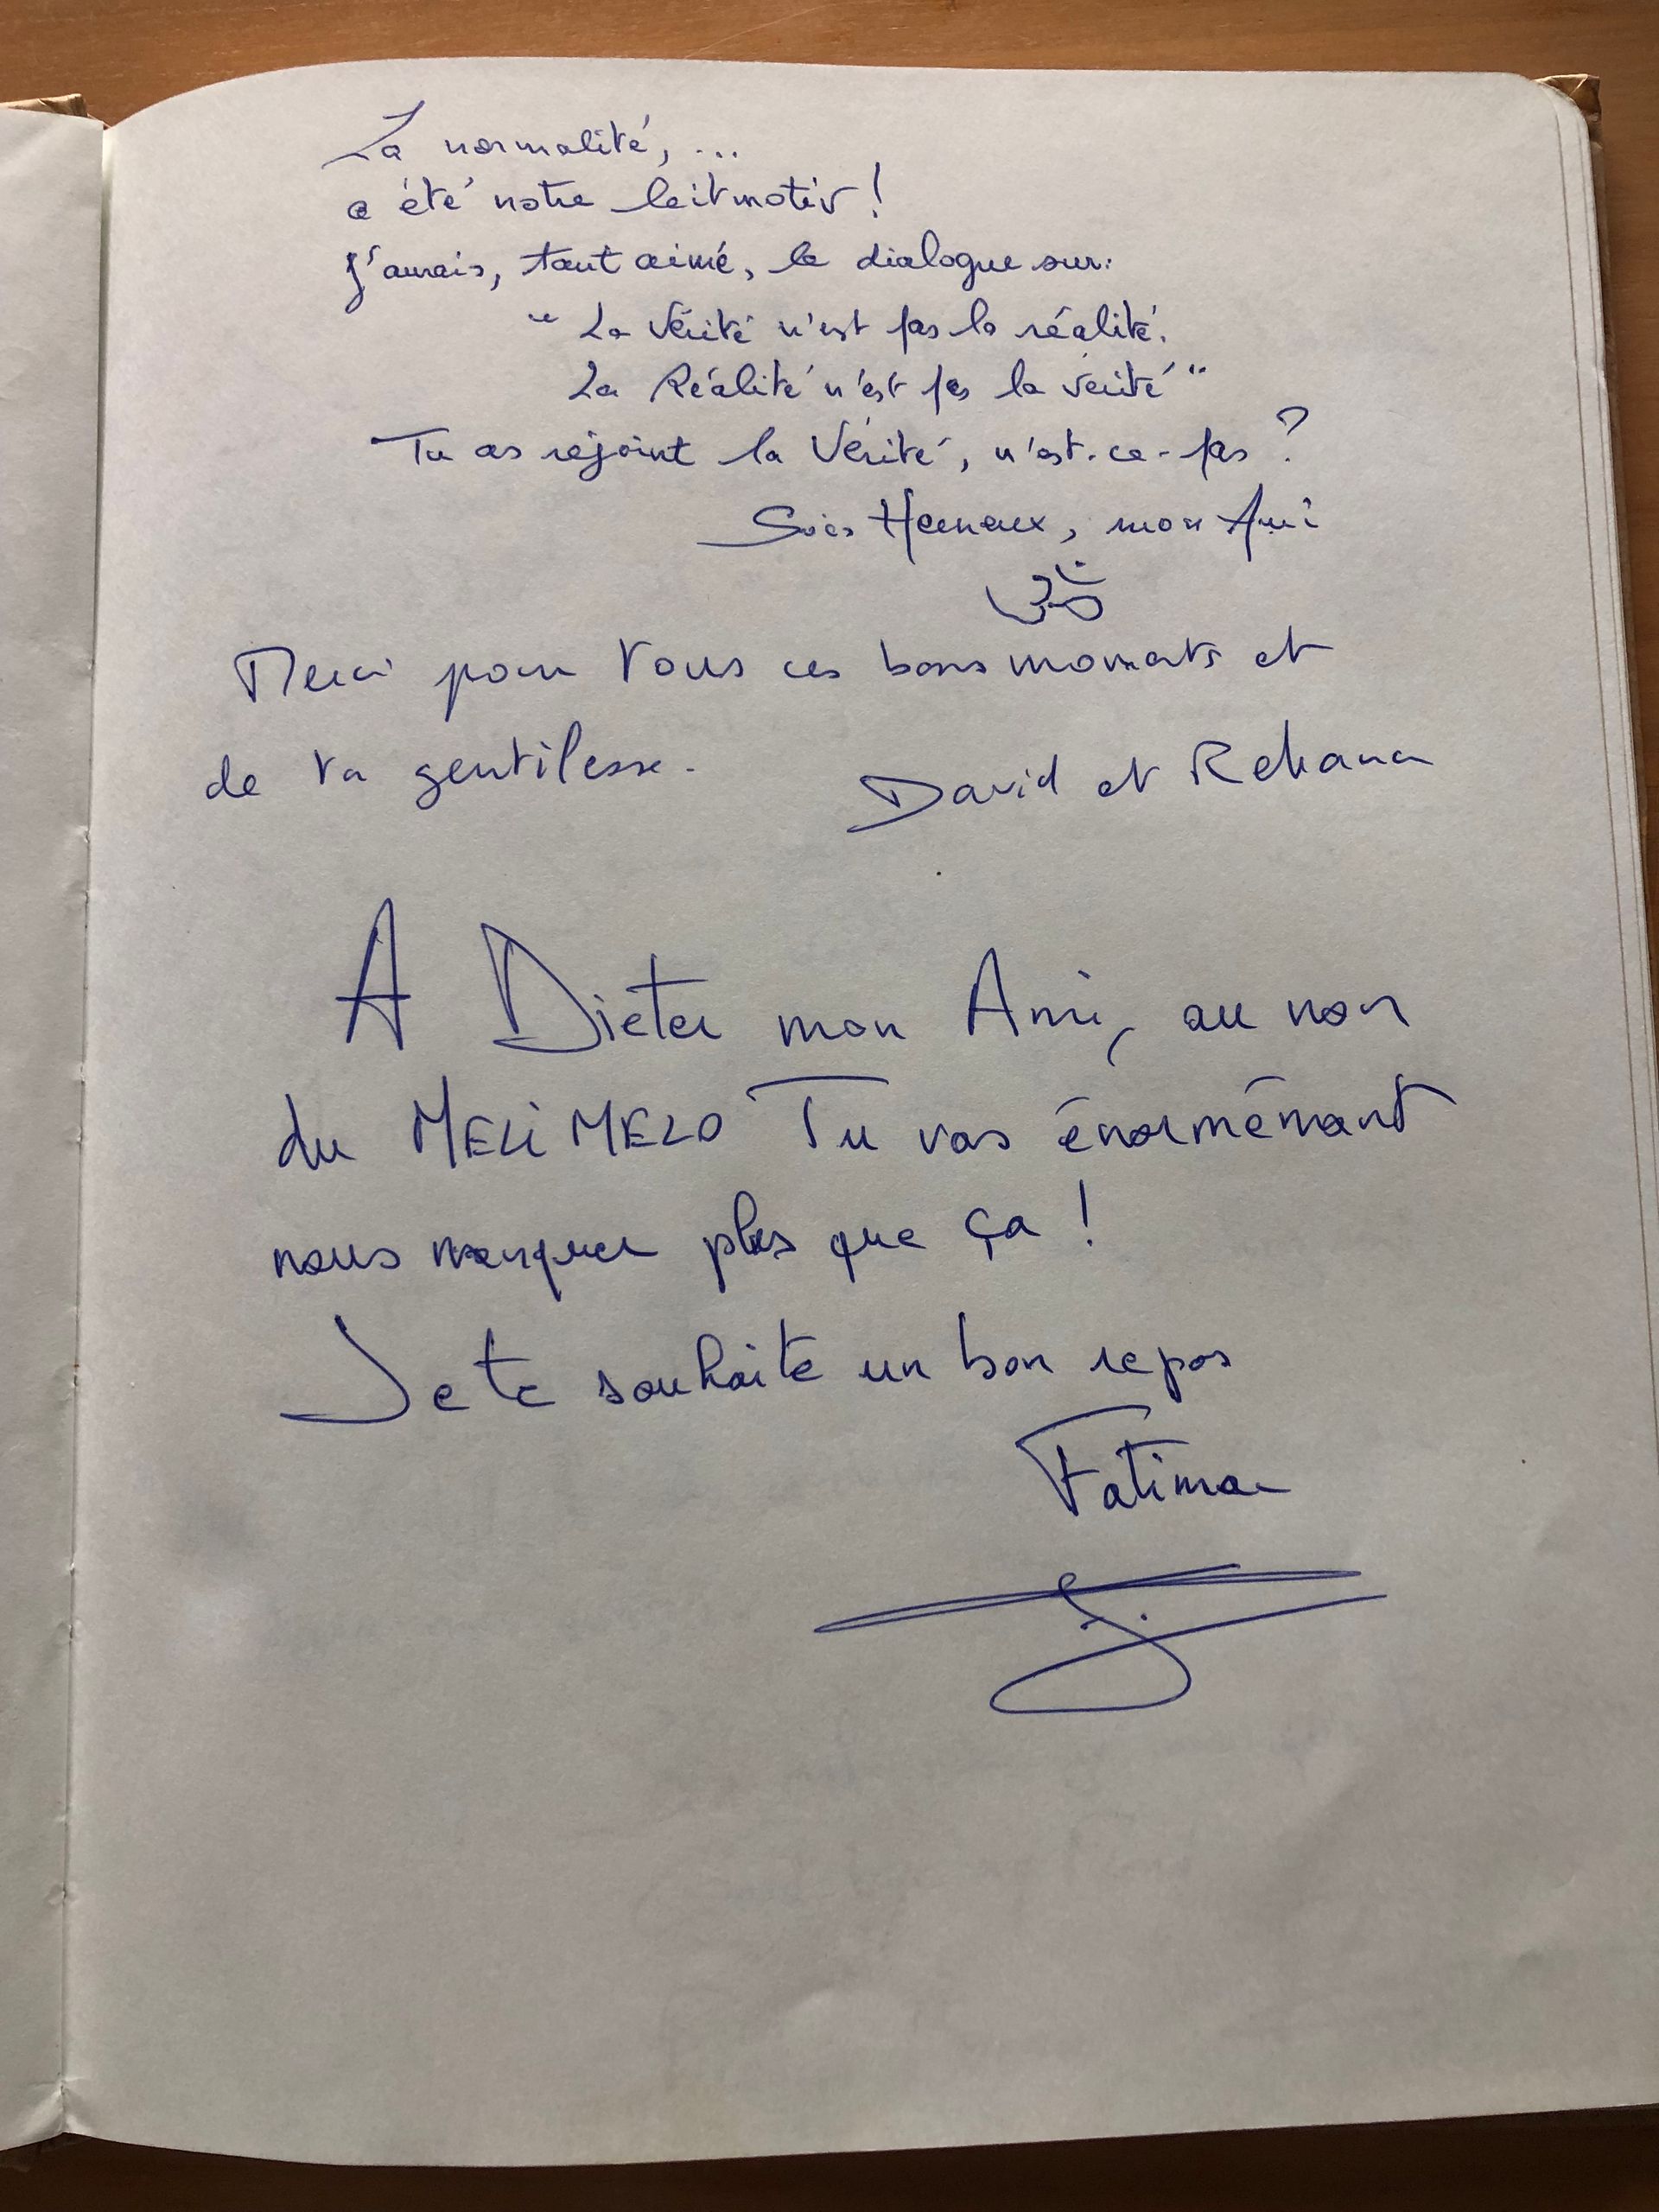 La normalité, ...
a été notre leitmotiv !
J'aurais, tant aimé, le dialogue sur:
" La Vérité n'est pas la réalité.
La Réalité n'est pas la vérité "
Tu as rejoint la Vérité, n'est-ce-pas ?
Sois Heureux, mon Ami
ॐ
Merci pour tous ces bons moments et
de ta gentilesse.
David et Rehana
A Dieter mon Ami, au nom
du MELI MELO Tu vas énormémant
nous manquer plus que ça !
Je te souhaite un bon repos
Fatima